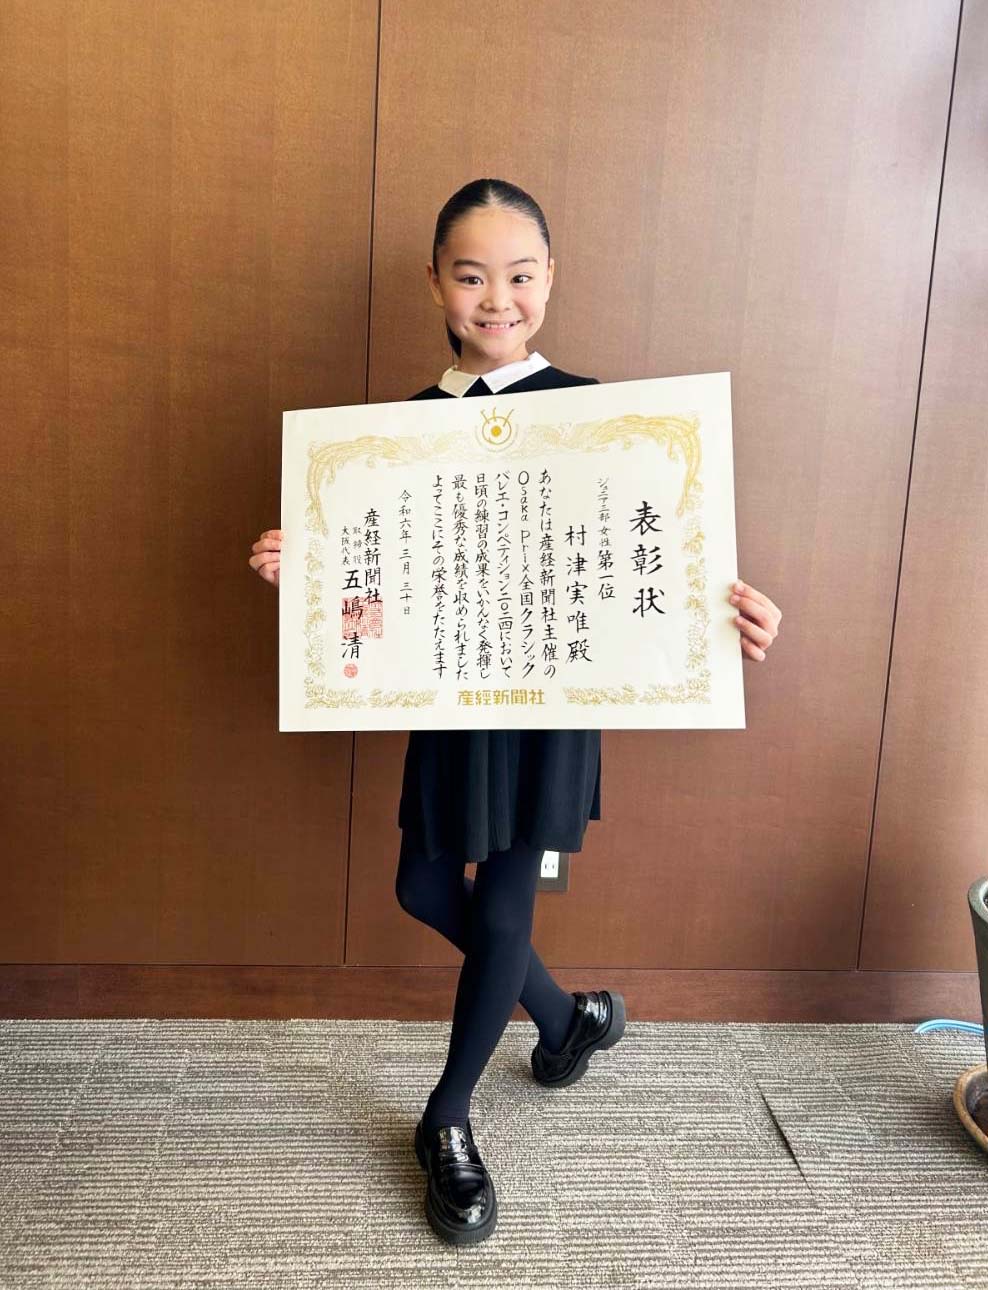 表彰状
ジュニア三部 女性 第一位
村津実唯殿
あなたは産経新聞社主催の
Osaka Prix全国クラシック
バレエ・コンペティション二〇二四において
日頃の練習の成果をいかんなく発揮し
最も優秀な成績を収められました
よってここにその栄誉をたたえます
令和六年三月三十日
産経新聞社
取締役
大阪代表 五嶋清
産經新聞社